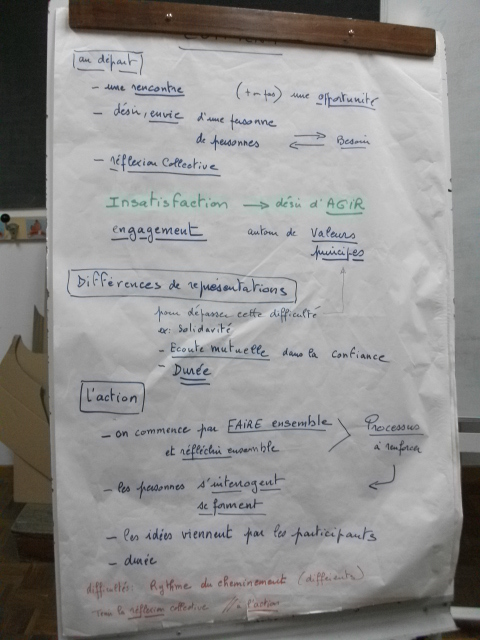 au départ
- une rencontre (+ou-) une opportunité
- désir, envie d'une personne
de personnes ⇄ Besoin
- réflexion Collective
Insatisfaction → désir d'AGIR
engagement autour de Valeurs
principes
Différences de représentations
pour dépasser cette difficulté
ex: Solidarité
- Ecoute mutuelle dans la confiance
- Durée
L'action
- on commence par FAIRE ensemble
et réfléchir ensemble
Processus
à renforcer
- les personnes s'interrogent
se forment
- les idées viennent par les participants
- durée
difficultés: Rythme du cheminement (différents)
la réflexion collective // à l'action